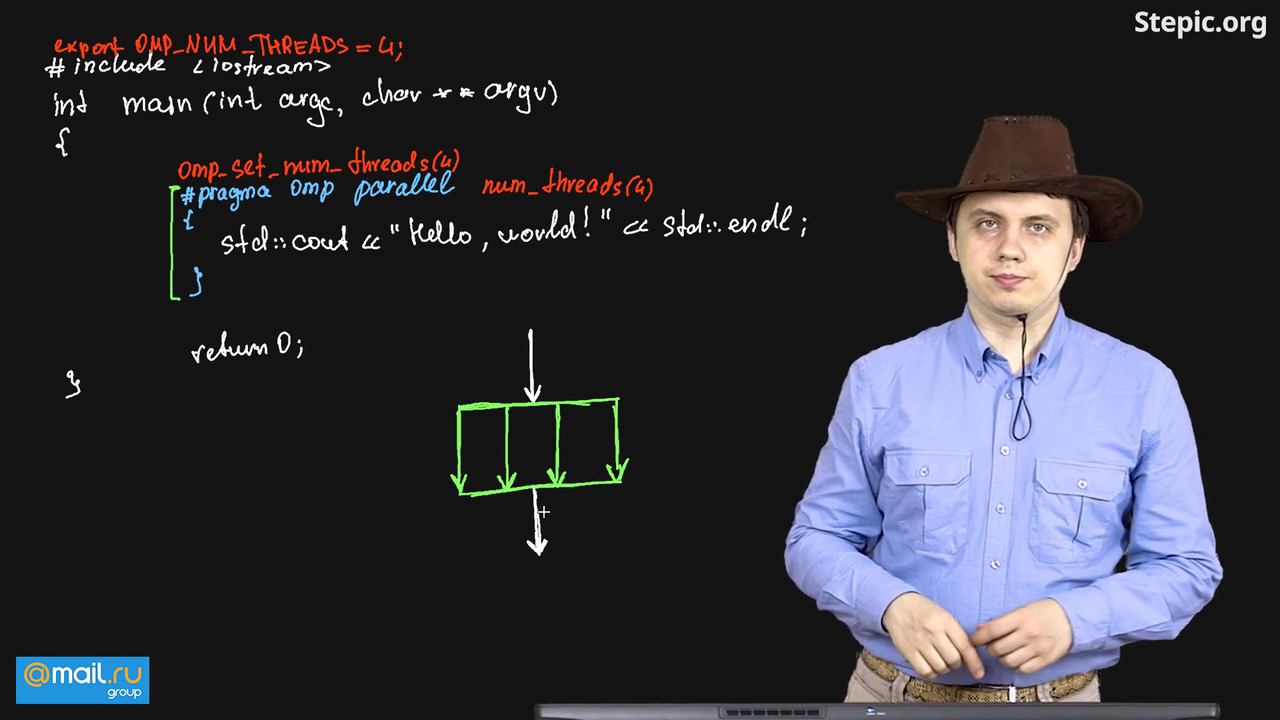 Stepic.org
export OMP_NUM_THREADS = 4;
#include <iostream>
int main (int argc, char ** argv)
{
omp_set_num_threads(4)
#pragma omp parallel num_threads(4)
{
std::cout << "Hello, world!" << std::endl;
}
return 0;
}
@mail.ru
group